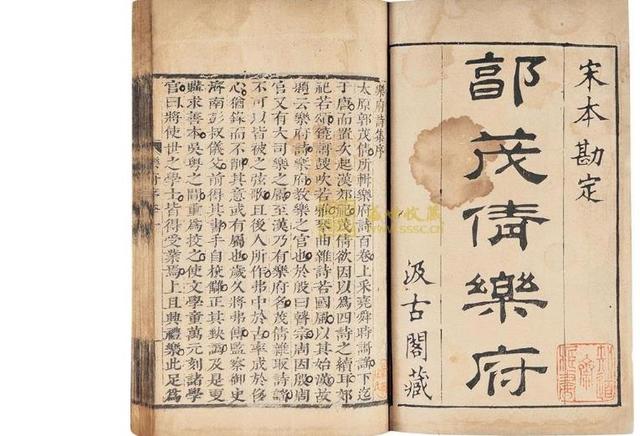 宋本勘定
郭茂倩樂府
汲古閣藏
樂府詩集序
太原郭茂倩所輯樂府詩百卷上采堯舜時謌謡下迄
于唐而置次起漢郊祀茂倩欲因以為四詩之續耳郊
祀若頌鐃謌鼓吹若雅琴曲雜詩若國風以其始漢故
題云樂府詩樂府教樂之官也於殷曰瞽宗周因殷周
官又有大司樂之屬至漢乃有樂府名茂倩雖取詩謌
不可以皆被之弦歌且後人所作弗中於古率成於侈
心猶錄而不削其意或有屬也歲久將弗傳監察御史
濟南彭叔儀父前得其書手自校讎正其缺譌及是更
購求善本吳粵之間重為校之使文學童萬元刻諸學
官曰將使世之學士皆得受業焉上且典禮樂此足為
盛世收藏
www.sssc.cn